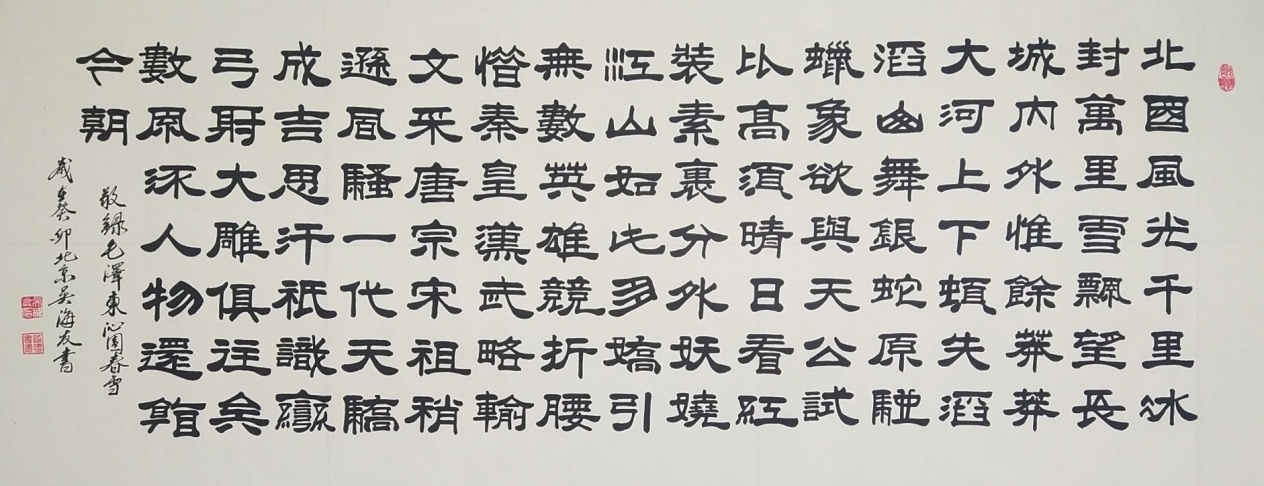 北國風光千里冰
封萬里雪飄望長
城内外惟餘莽莽
大河上下頓失滔
滔山舞銀蛇原馳
蠟象欲與天公試
比高須晴日看紅
裝素裹分外妖嬈
江山如此多嬌引
無數英雄競折腰
惜秦皇漢武略輸
文采唐宗宋祖稍
遜風騷一代天驕
成吉思汗祇識彎
弓射大雕俱往矣
數風流人物還看
今朝
敬錄毛澤東沁園春雪
歲在癸卯北京吳海友書